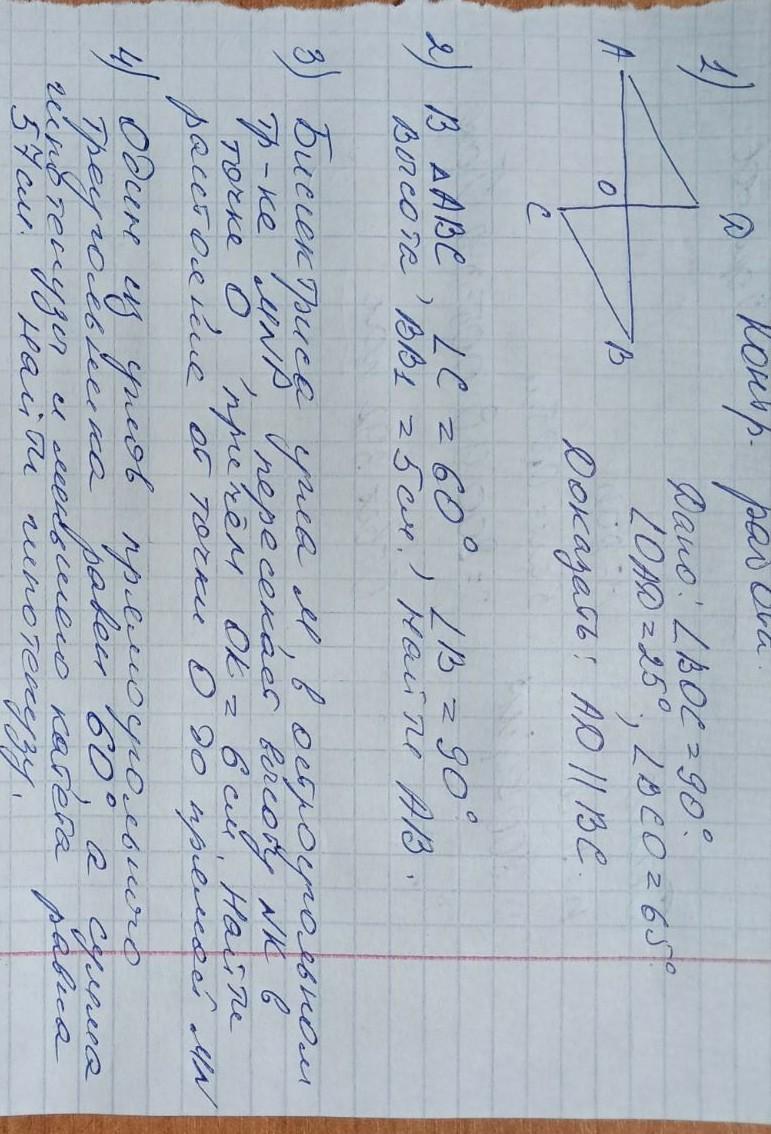 Контр. работа.
1) Дано: ∠BOC = 90°.
∠OAD = 25°, ∠BCO = 65°
Доказать: AD || BC.
A
D
O
C
B
2) В △ABC, ∠C = 60° ∠B = 90°
Высота, BB1 = 5 см., Найти AB.
3) Биссектриса угла M, в остроугольном
тр-ке MNP пересекает высоту NK в
точке O, причём OK = 6 см. Найти
расстояние от точки O до прямой MN
4) Один из углов прямоугольного
треугольника равен 60°, а сумма
гипотенузы и меньшего катета равна
57 см. Найти гипотенузу.